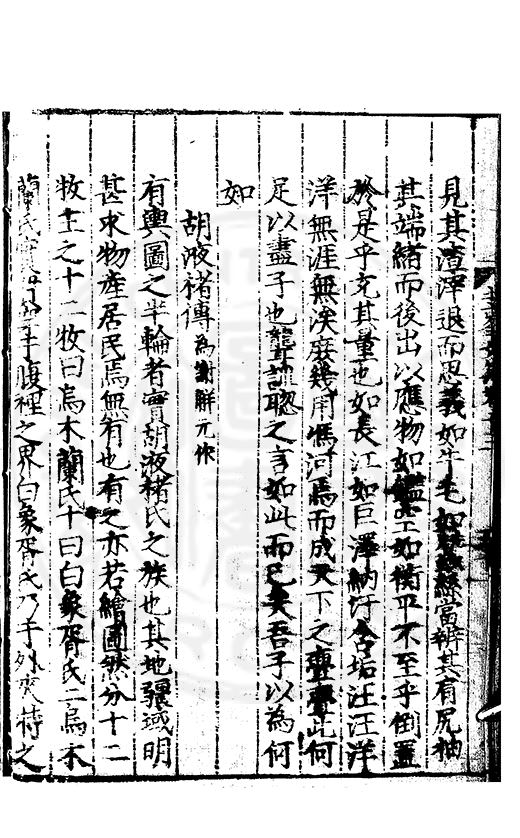 見其渣滓退而思義如牛毛如蠶絲當辨其有尻柚
其端緒而後出以應物如鑑空如衡平不至乎倒置
於是乎充其量也如長江如巨澤納汙含垢汪汪洋
洋無涯無涘庶幾用馮河焉而成天下之亹亹此何
足以盡子也聾聰之言如此而已矣吾子以為何
如
胡液褚傳為謝解元作
有輿圖之半輪者實胡液褚氏之族也其地疆域明
甚求物産居民焉無有也有之亦若繪圖然分十二
牧主之十二牧曰烏木蘭氏十曰白象胥氏二烏木
蘭氏實腹裡之界白象胥氏乃于外夾持之